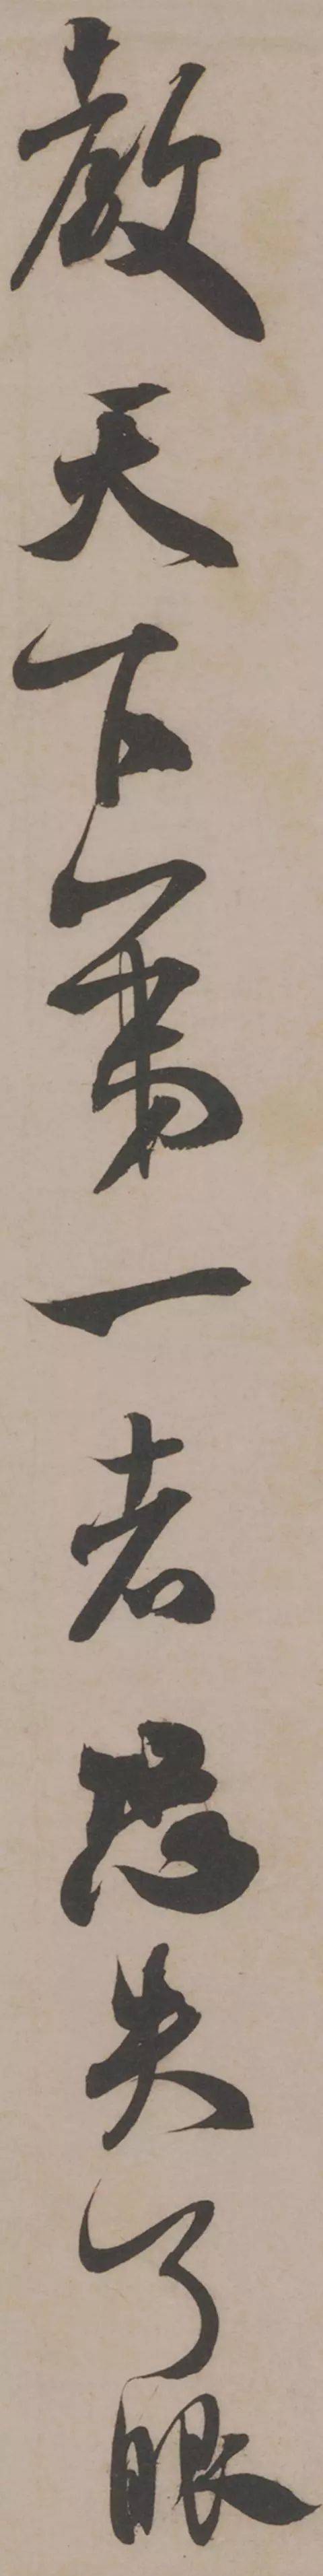 教天下第一者恐失了眼